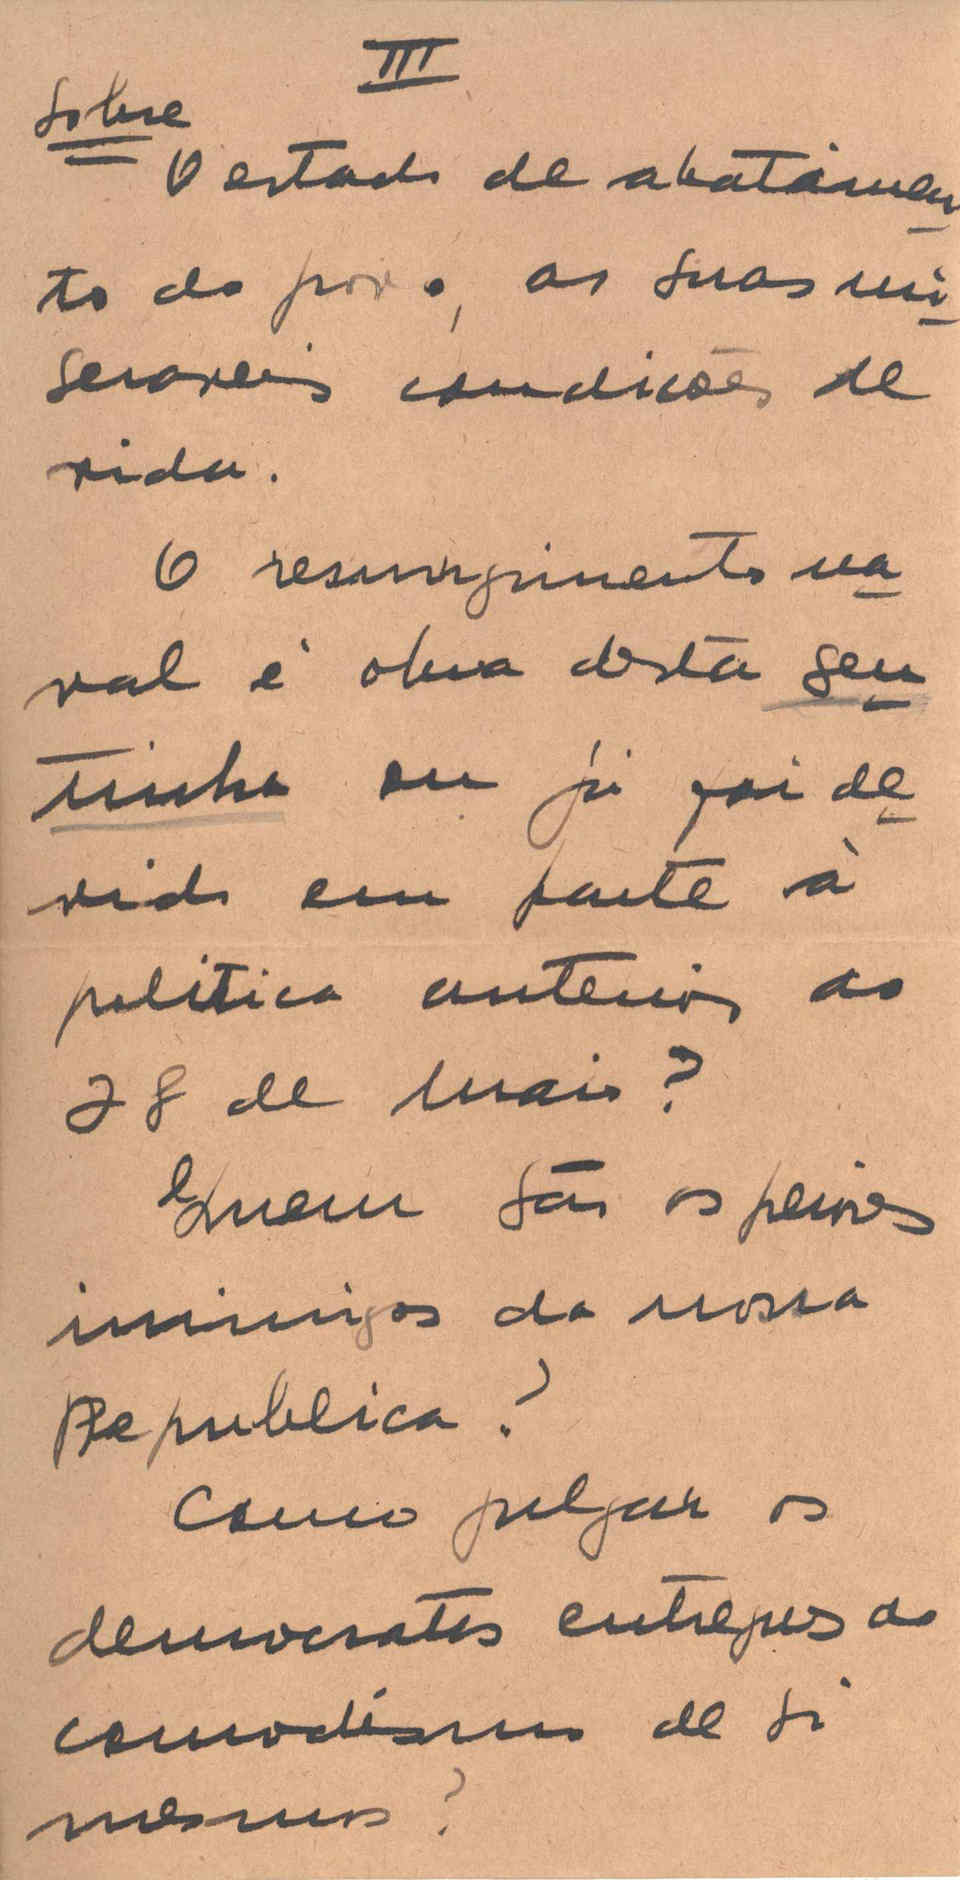 III
Sobre
O estado de abatimen
to do povo, as suas mi
seraveis condições de
vida.
O resurgimento na
val é obra desta gen
tinha ou já foi de
vido em parte à
politica anterior ao
28 de Maio?
Quem são os peiores
inimigos da nossa
Republica?
Como julgar os
democratas entregues ao
comodismo de si
mesmos?